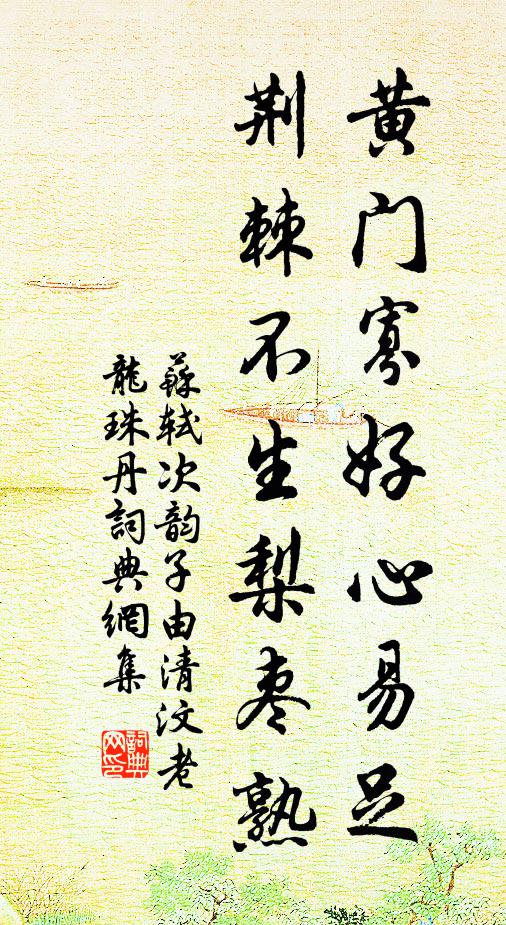 黄门寡好心易足
荆棘不生梨枣熟
蘇轼次韵子由清汶老
龍珠丹詞典網集
詞典网印